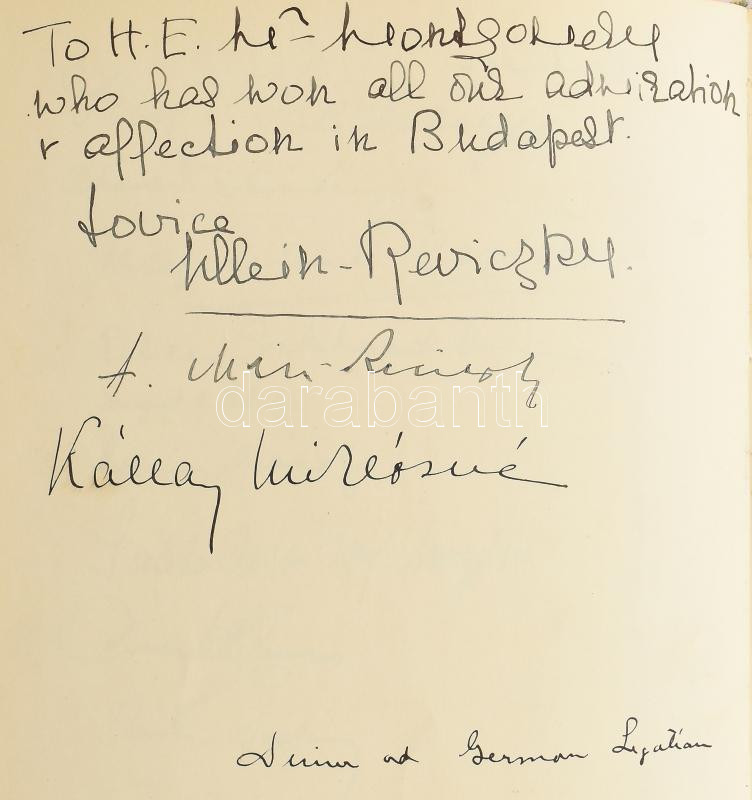 To H. E. Mr Montgomery
who has won all our admiration
& affection in Budapest.
Lovice
Ullein-Reviczky.
A. Ullein-Reviczky
darabanth
Kállay Miklósné
Dinner at German Legation